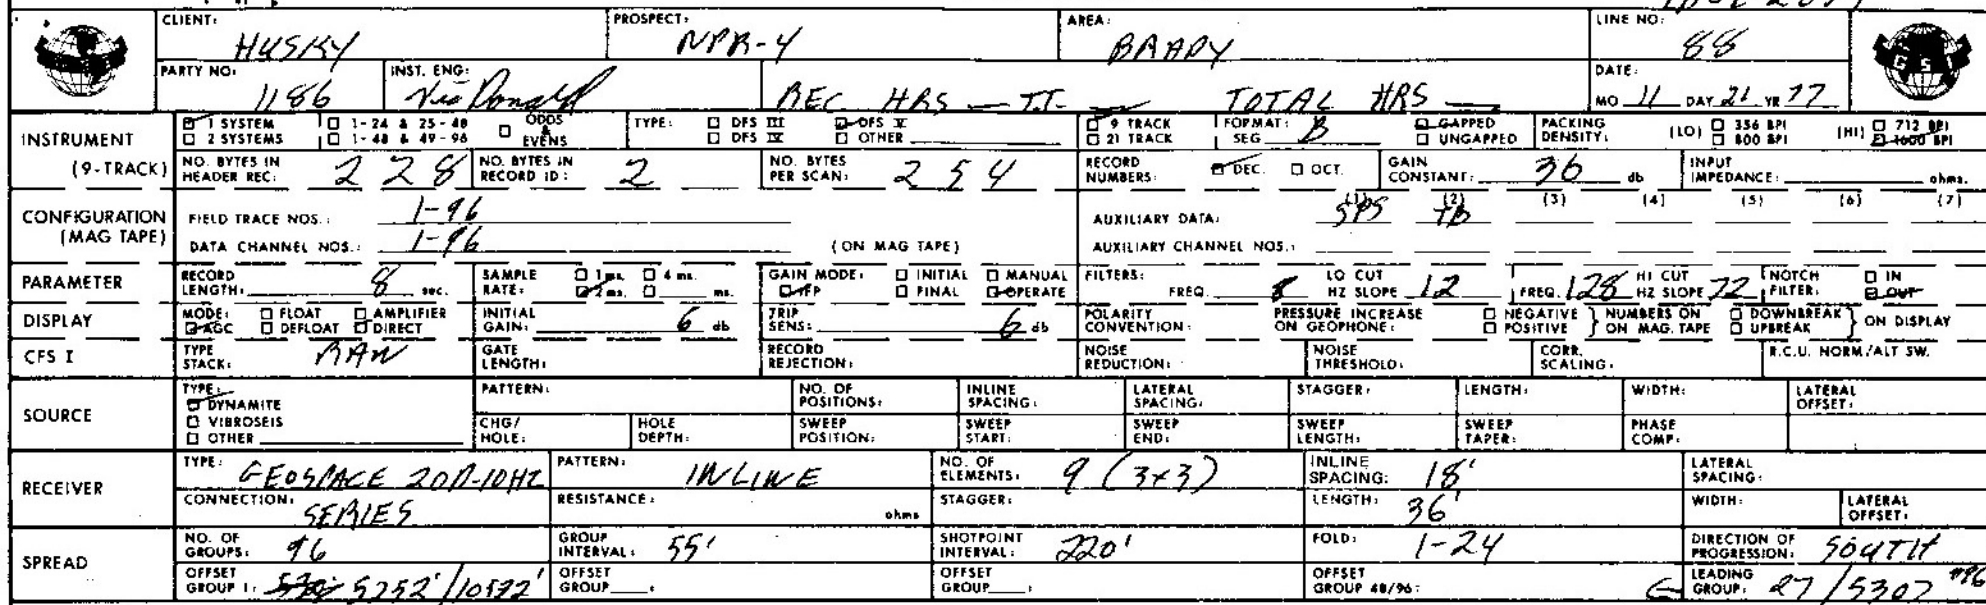 CLIENT: HUSKY PROSPECT: NPR-4 AREA: BRADY LINE NO: 88
PARTY NO: 1186 INST. ENG: REC HRS — TT — TOTAL HRS — DATE: MO 11 DAY 21 YR 77
GSI
INSTRUMENT (9-TRACK)
☑ 1 SYSTEM ☐ 1-24 & 25-48 ☐ ODDS & EVENS TYPE: ☐ DFS III ☑ DFS V ☑ 9 TRACK FORMAT: SEG B ☑ GAPPED PACKING DENSITY: (LO) ☐ 356 BPI (HI) ☐ 712 BPI
☐ 2 SYSTEMS ☐ 1-48 & 49-96 ☐ DFS IV ☐ OTHER ☐ 21 TRACK ☐ UNGAPPED ☐ 800 BPI ☑ 1600 BPI
NO. BYTES IN HEADER REC: 228 NO. BYTES IN RECORD ID: 2 NO. BYTES PER SCAN: 254 RECORD NUMBERS: ☑ DEC. ☐ OCT. GAIN CONSTANT: 36 db INPUT IMPEDANCE: ohms.
CONFIGURATION (MAG TAPE)
FIELD TRACE NOS.: 1-96 AUXILIARY DATA: (1) SPS (2) TB (3) (4) (5) (6) (7)
DATA CHANNEL NOS.: 1-96 (ON MAG TAPE) AUXILIARY CHANNEL NOS.:
PARAMETER RECORD LENGTH: 8 sec. SAMPLE RATE: ☐ 1 ms. ☐ 4 ms. ☑ 2 ms. ☐ ms. GAIN MODE: ☐ INITIAL ☐ MANUAL ☑ IFP ☐ FINAL ☑ OPERATE FILTERS: FREQ. 8 LO CUT HZ SLOPE 12 FREQ. 128 HI CUT HZ SLOPE 72 NOTCH FILTER: ☐ IN ☑ OUT
DISPLAY MODE: ☐ FLOAT ☐ AMPLIFIER ☑ AGC ☐ DEFLOAT ☑ DIRECT INITIAL GAIN: 6 db TRIP SENS: 6 db POLARITY CONVENTION: PRESSURE INCREASE ON GEOPHONE: ☐ NEGATIVE ☐ POSITIVE } NUMBERS ON MAG. TAPE ☐ DOWNBREAK ☐ UPBREAK } ON DISPLAY
CFS I TYPE STACK: RAW GATE LENGTH: RECORD REJECTION: NOISE REDUCTION: NOISE THRESHOLD: CORR. SCALING: R.C.U. NORM/ALT SW.
SOURCE TYPE: ☑ DYNAMITE ☐ VIBROSEIS ☐ OTHER
PATTERN: NO. OF POSITIONS: INLINE SPACING: LATERAL SPACING: STAGGER: LENGTH: WIDTH: LATERAL OFFSET:
CHG/HOLE: HOLE DEPTH: SWEEP POSITION: SWEEP START: SWEEP END: SWEEP LENGTH: SWEEP TAPER: PHASE COMP:
RECEIVER TYPE: GEOSPACE 20D-10HZ PATTERN: INLINE NO. OF ELEMENTS: 9 (3x3) INLINE SPACING: 18' LATERAL SPACING:
CONNECTION: SERIES RESISTANCE: ohms STAGGER: LENGTH: 36' WIDTH: LATERAL OFFSET:
SPREAD NO. OF GROUPS: 96 GROUP INTERVAL: 55' SHOTPOINT INTERVAL: 220' FOLD: 1-24 DIRECTION OF PROGRESSION: SOUTH
OFFSET GROUP 1: 5252'/10522' OFFSET GROUP : OFFSET GROUP : OFFSET GROUP 48/96: LEADING GROUP: 27/5307 #96